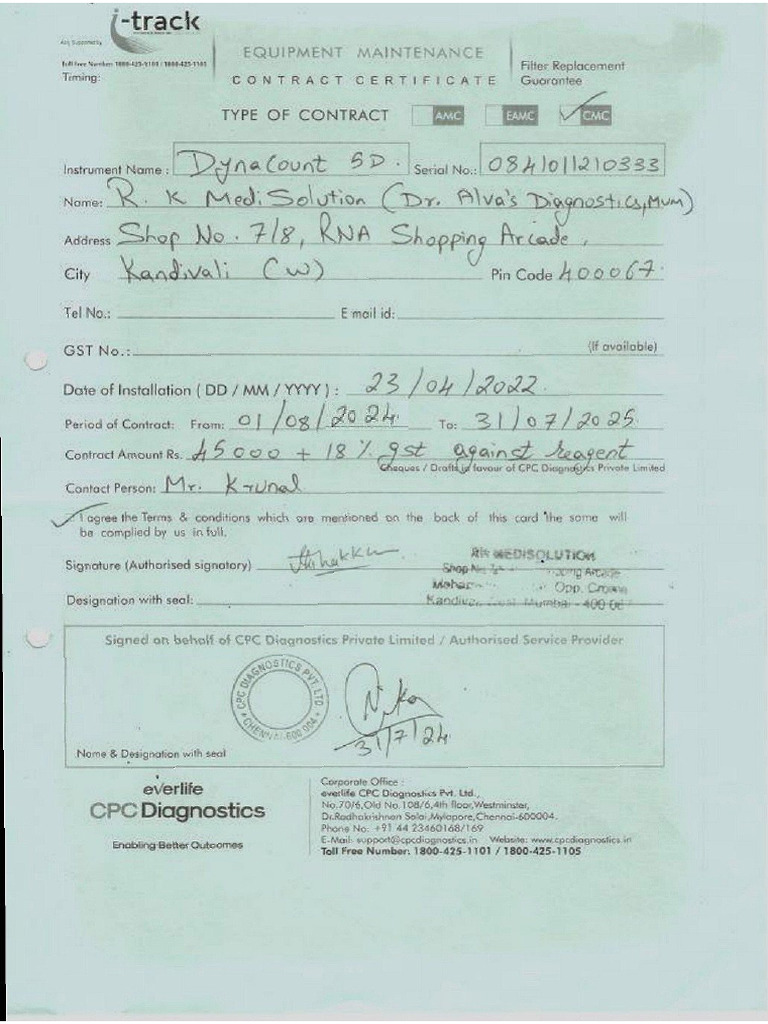 i-track
Any Support by
Toll Free Number: 1800-425-1101 / 1800-425-1105
Timing:
EQUIPMENT MAINTENANCE
CONTRACT CERTIFICATE
Filter Replacement
Guarantee
TYPE OF CONTRACT AMC EAMC CMC
Instrument Name : Dynacount 5D. Serial No.: 084101121033 3
Name: R. K MediSolution (Dr. Alva's Diagnostics, Mum)
Address Shop No. 7/8, RNA Shopping Arcade,
City Kandivali (W) Pin Code 400067.
Tel No.: E mail id:
GST No.: (If available)
Date of Installation ( DD / MM / YYYY ) : 23/04/2022.
Period of Contract: From: 01/08/2024. To: 31/07/2025.
Contract Amount Rs. 45000 + 18 % gst against reagent
Cheques / Drafts in favour of CPC Diagnostics Private Limited
Contact Person: Mr. Krunal
I agree the Terms & conditions which are mentioned on the back of this card the same will
be complied by us in full.
Signature (Authorised signatory)
RK MEDISOLUTION
Shop No. 7/ Shopping Arcade
Opp. Crown
Designation with seal: Mumbai - 400 067
Signed on behalf of CPC Diagnostics Private Limited / Authorised Service Provider
CPC DIAGNOSTICS PVT. LTD.
CHENNAI-600 004
31/7/24
Name & Designation with seal
everlife
CPC Diagnostics
Enabling Better Outcomes
Corporate Office :
everlife CPC Diagnostics Pvt. Ltd.,
No.70/6,Old No.108/6,4th floor,Westminster,
Dr.Radhakrishnan Salai,Mylapore,Chennai-600004.
Phone No. +91 44 23460168/169
E-Mail: support@cpcdiagnostics.in Website: www.cpcdiagnostics.in
Toll Free Number: 1800-425-1101 / 1800-425-1105